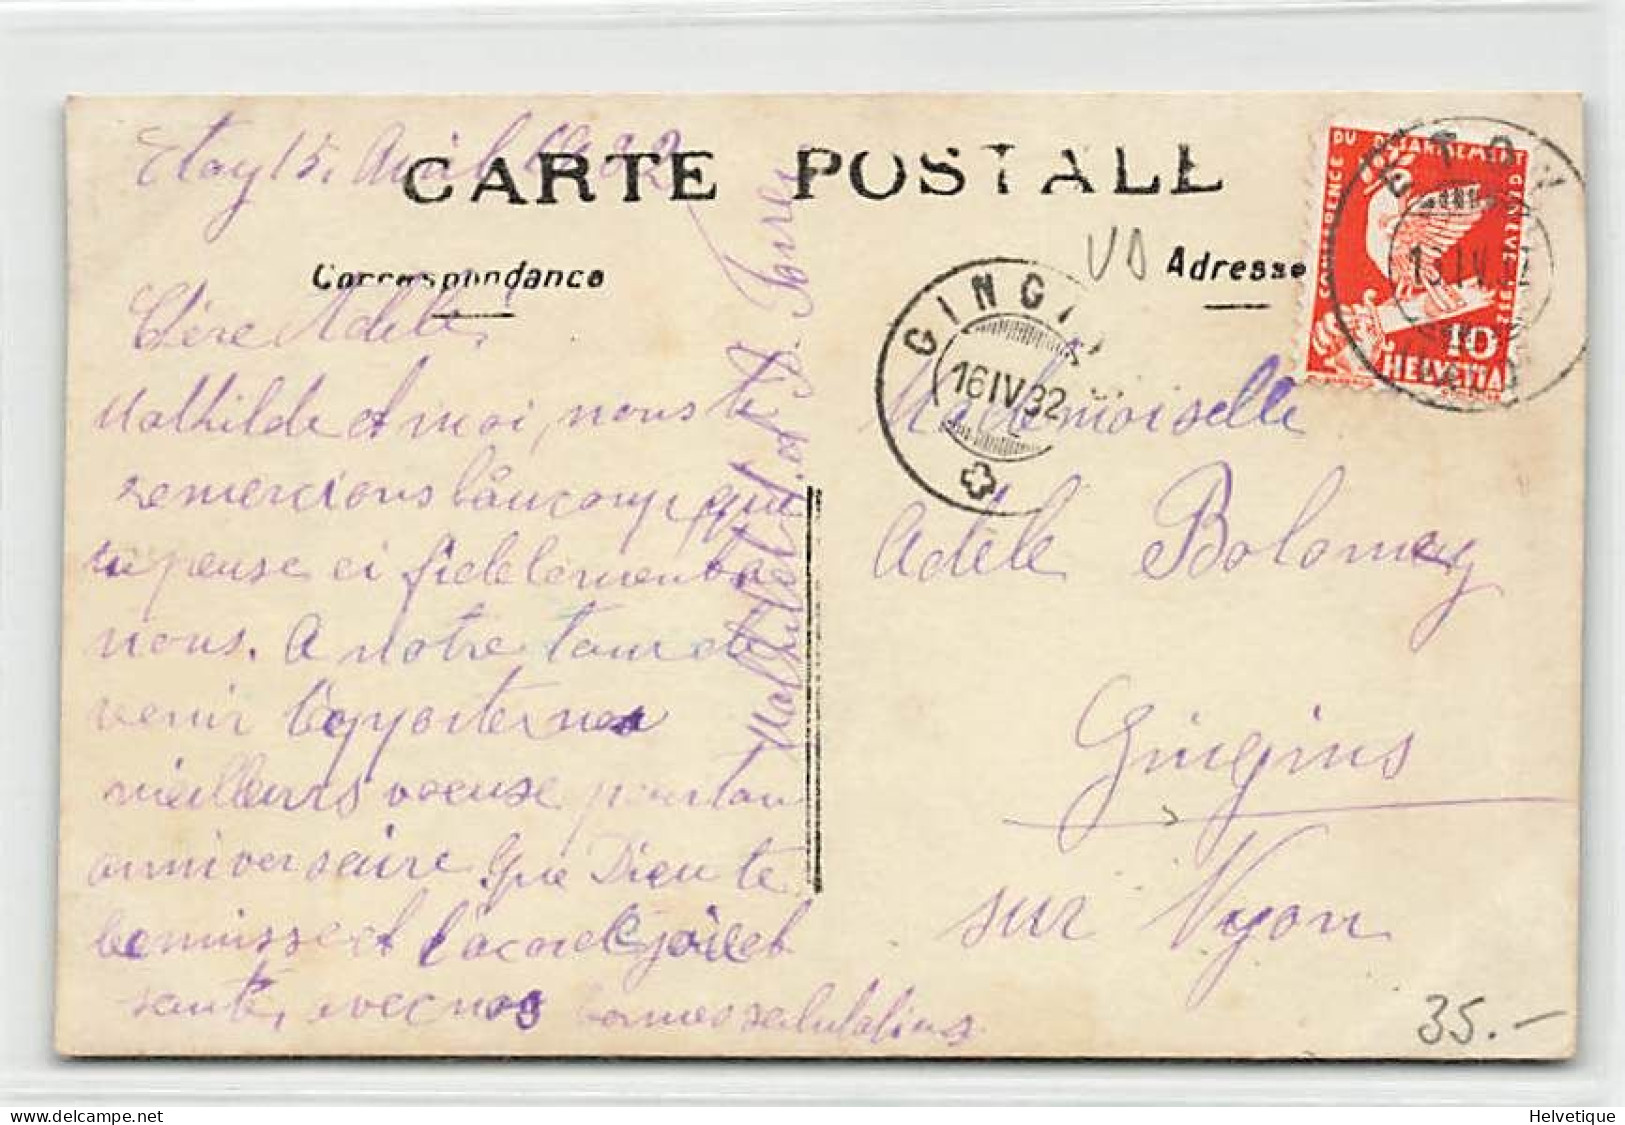 Etoy 15. Avril 1932
CARTE POSTALE
Correspondance
Adresse
Chère Adèle,
Mathilde et moi, nous te
remercions bàucoup, que
tu pense ci fidelement a
nous. A notre tour de
venir t'apporter nos
meilleurs voeuse pour ton
anniversaire. Que Dieu te
bennisse et t'acorde joie et
santé, avec nos bonnes salutations
Mathilde et
VD
CONFERENCE DU DESARMEMENT GENEVE 1932
10
HELVETIA
ETOY
GINGINS
16 IV 32
Mademoiselle
Adèle Bolomey
Gingins
sur Nyon
35.-
Helvetique